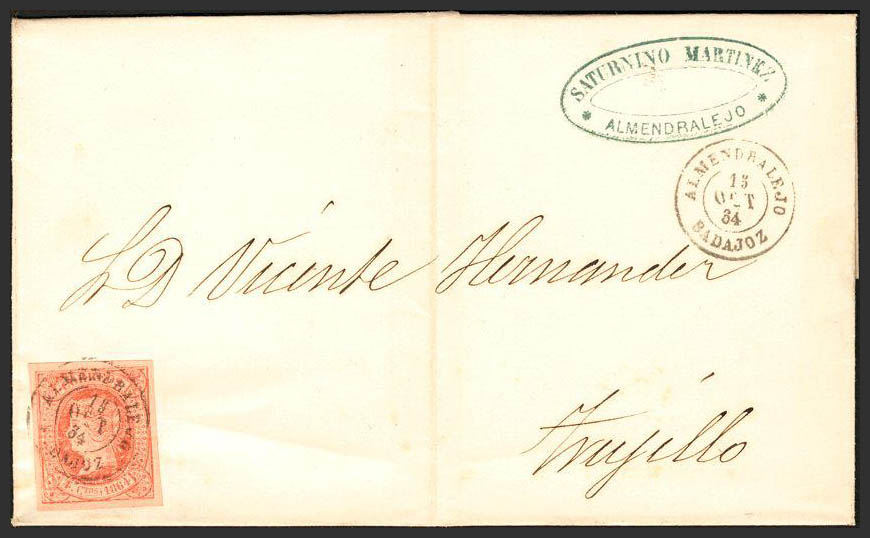 SATURNINO MARTINEZ
* ALMENDRALEJO *
ALMENDRALEJO
15
OCT
64
BADAJOZ
S D Vicente Hernandez
Trujillo
ALMENDRALEJO
15
OCT
64
BADAJOZ
4 Ctos 1864